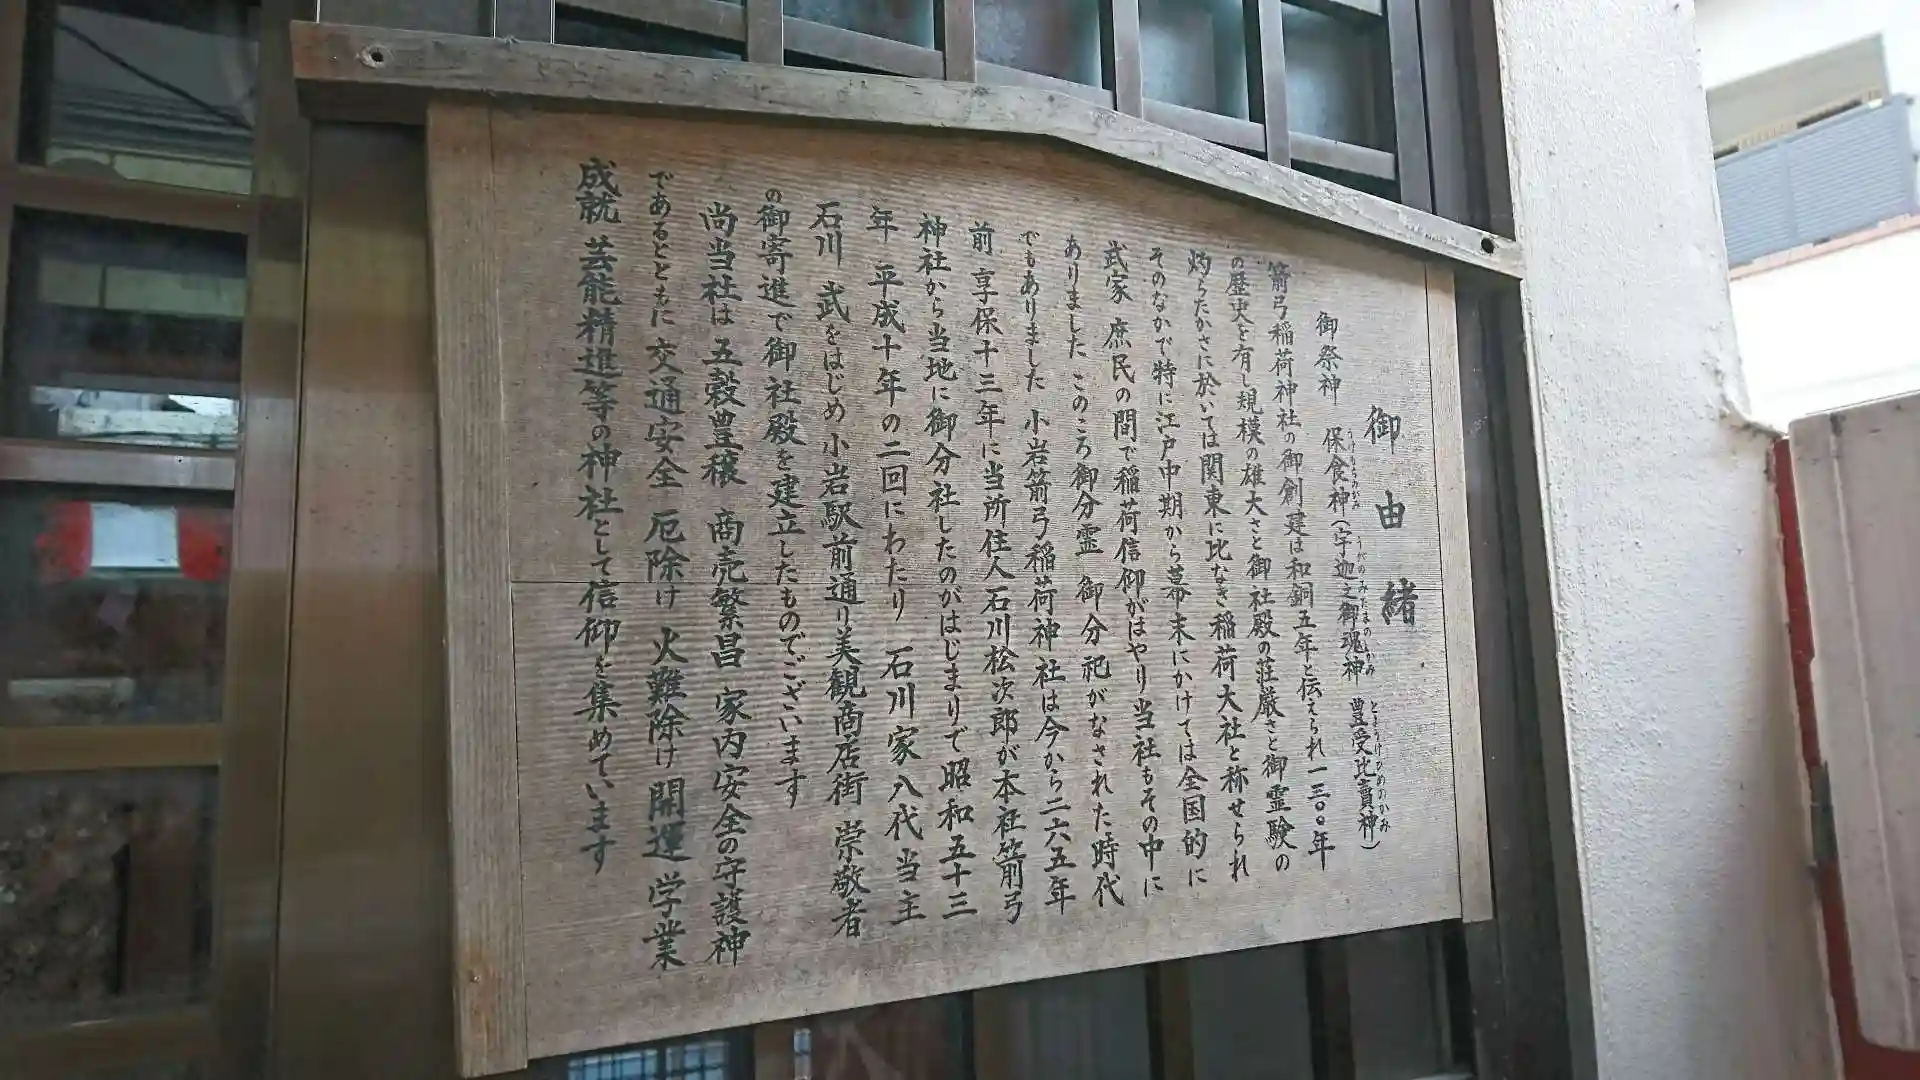 御由緒
御祭神 保食神(宇迦之御魂神 豊受比賣神)
うけもちのかみ うがのみたまのかみ とようけひめのかみ
箭弓稲荷神社の御創建は和銅五年と伝えられ一三〇〇年
の歴史を有し規模の雄大さと御社殿の荘厳さと御霊験の
灼らたかさに於いては関東に比なき稲荷大社と称せられ
そのなかで特に江戸中期から幕末にかけては全国的に
武家 庶民の間で稲荷信仰がはやり当社もその中に
ありました このころ御分霊 御分祀がなされた時代
でもありました 小岩箭弓稲荷神社は今から二六五年
前 享保十三年に当所住人石川松次郎が本社箭弓
神社から当地に御分社したのがはじまりで昭和五十三
年 平成十年の二回にわたり 石川家八代当主
石川 武をはじめ小岩駅前通り美観商店街 崇敬者
の御寄進で御社殿を建立したものでございます
尚当社は五穀豊穣 商売繁昌 家内安全の守護神
であるとともに交通安全 厄除け 火難除け 開運 学業
成就 芸能精進等の神社として信仰を集めています